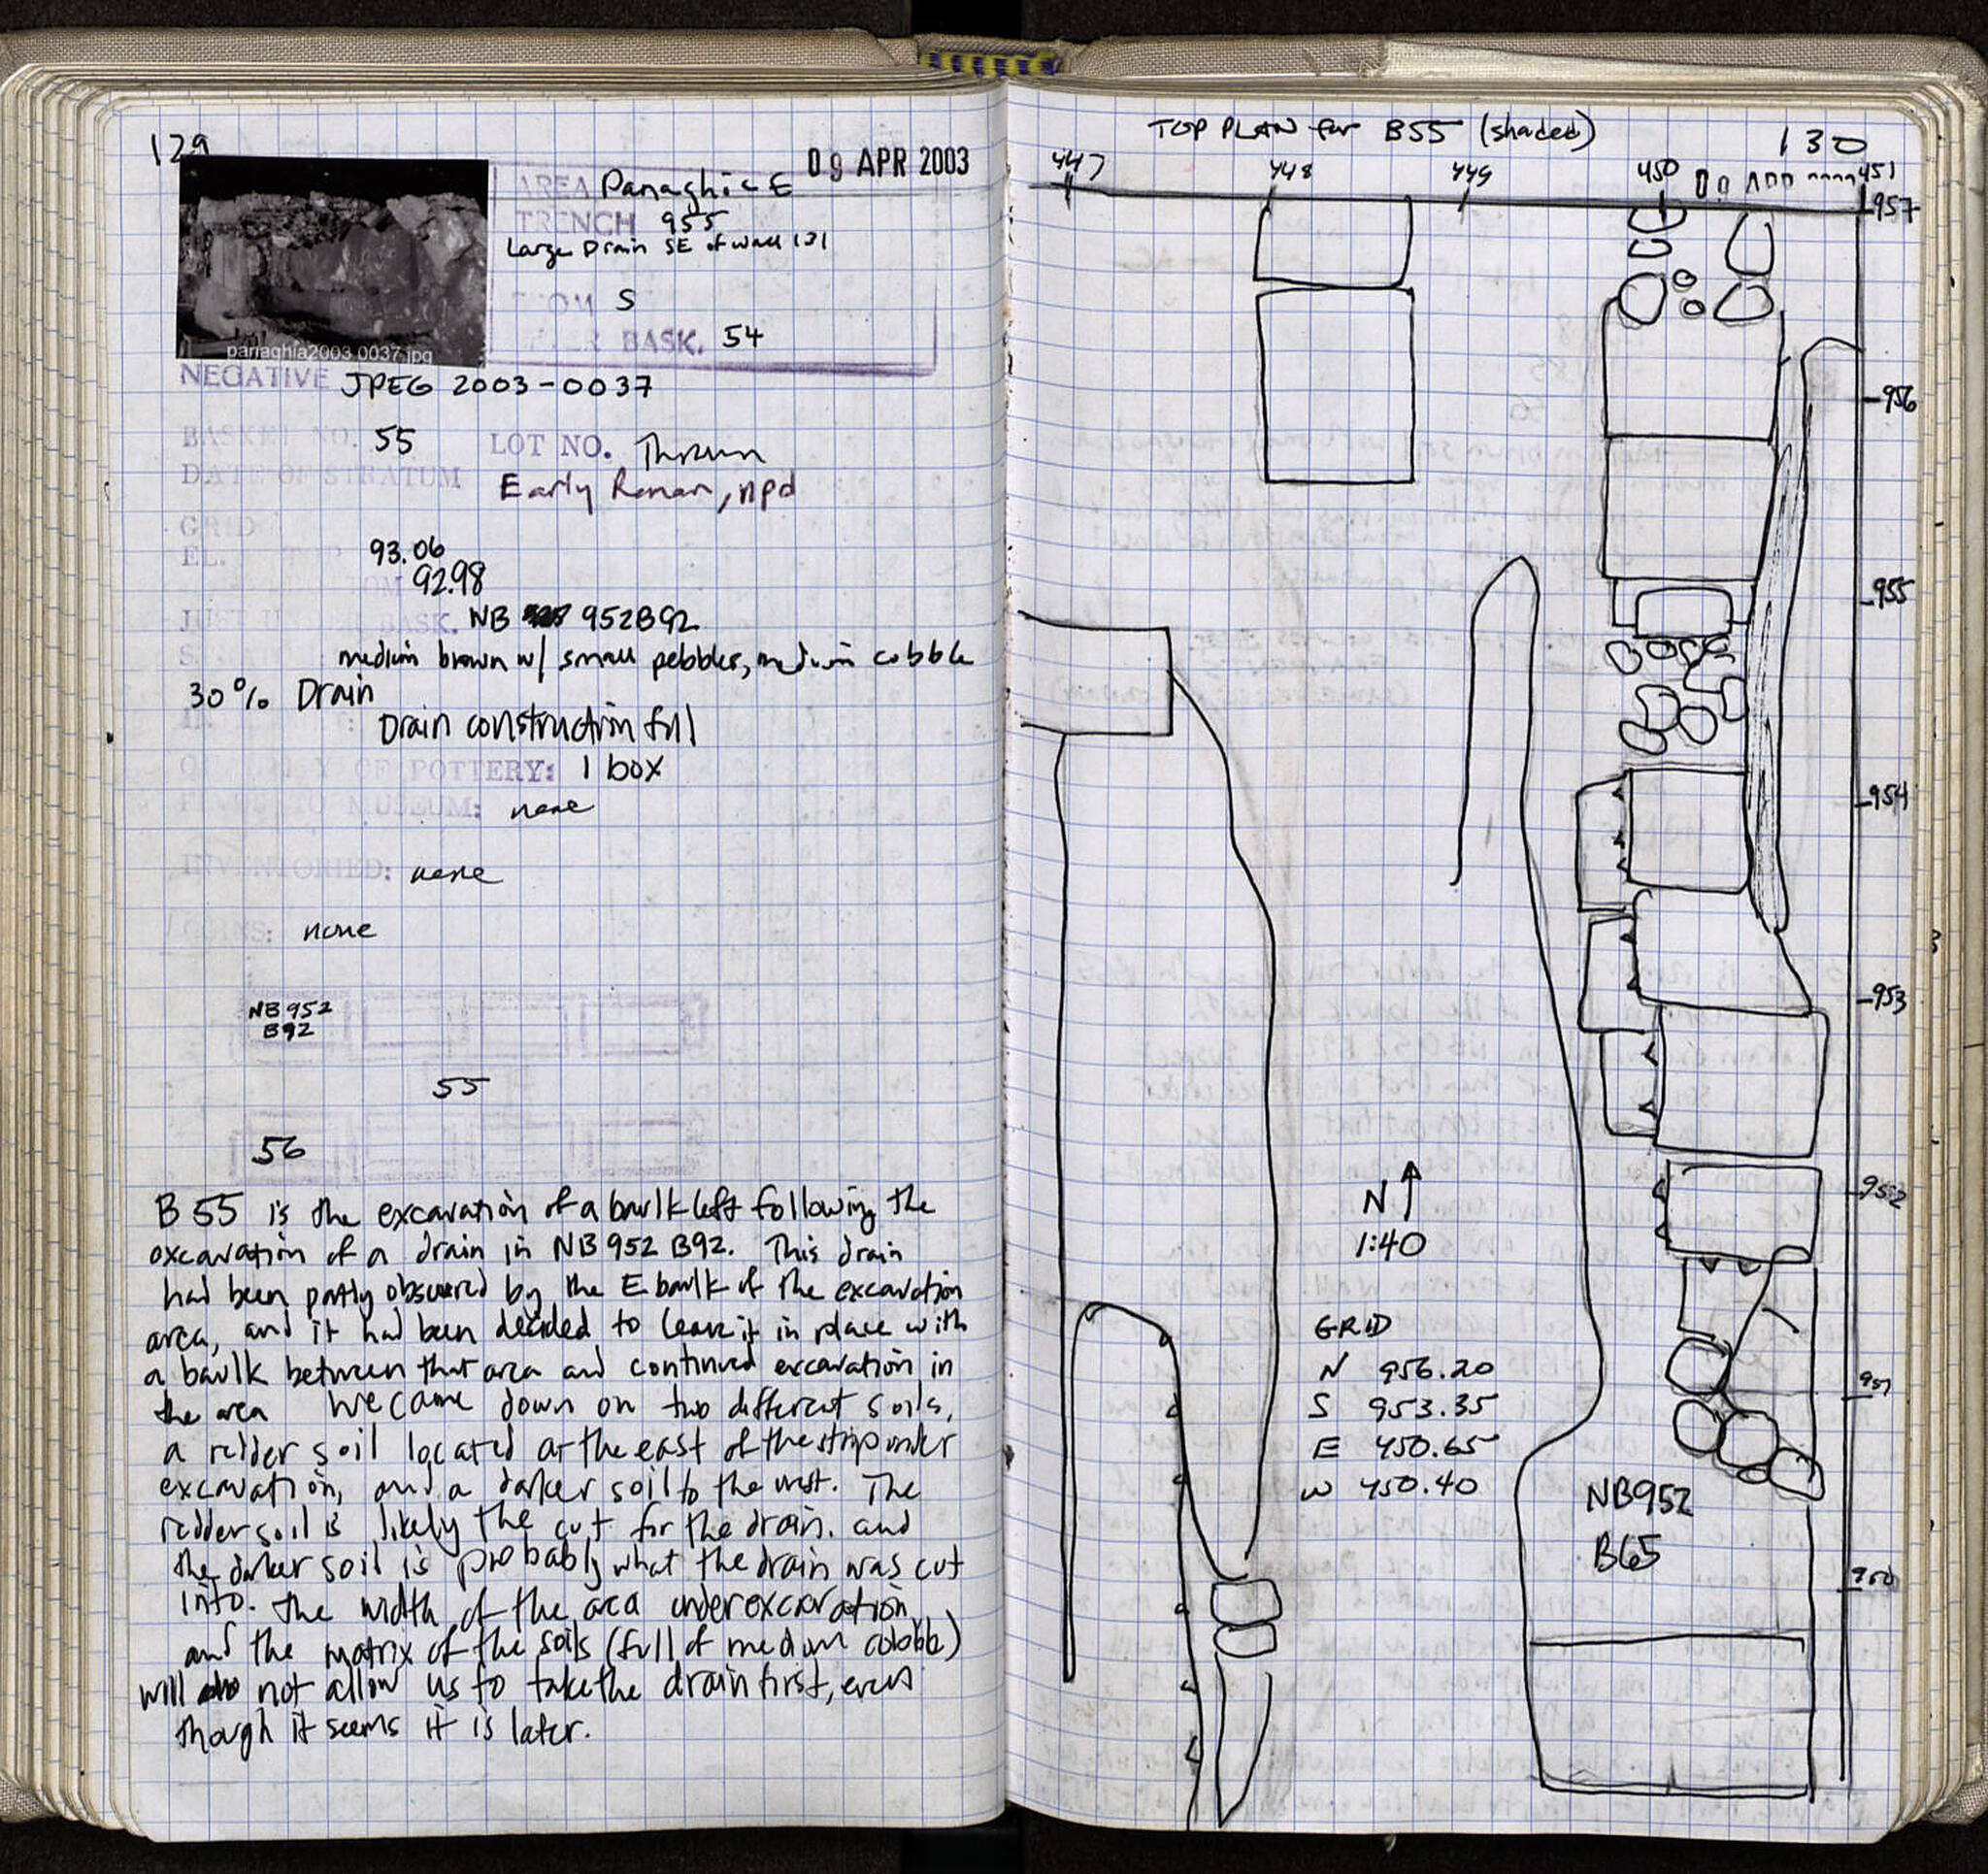 129
09 APR 2003
AREA Panaghia E
TRENCH 955
Large Drain SE of wall 131
FROM S
AFTER BASK. 54
panaghia2003 0037.jpg
NEGATIVE JPEG 2003-0037
BASKET NO. 55 LOT NO.
DATE OF STRATUM Early Roman, npd
GRID
EL. TOP 93.06
BOTTOM 92.98
JUST UNDER BASK. NB 952B92
medium brown w/ small pebbles, medium cobble
30% Drain
Drain construction fill
QUANTITY OF POTTERY: 1 box
FINDS TO MUSEUM: none
INVENTORIED: none
COINS: none
NB952
B92
55
56
B 55 is the excavation of a baulk left following the
excavation of a drain in NB 952 B92. This drain
had been partly obscured by the E baulk of the excavation
area, and it had been decided to leave it in place with
a baulk between that area and continued excavation in
the area We came down on two different soils,
a redder soil located at the east of the strip under
excavation, and a darker soil to the west. The
redder soil is likely the cut for the drain. and
the darker soil is probably what the drain was cut
into. The width of the area under excavation
and the matrix of the soils (full of medium cobble)
will not allow us to take the drain first, even
though it seems it is later.
TOP PLAN for B55 (shaded) 130
447 448 449 450 451
957
956
955
954
953
952
951
950
N
1:40
GRID
N 956.20
S 953.35
E 450.65
W 450.40
NB952
B65